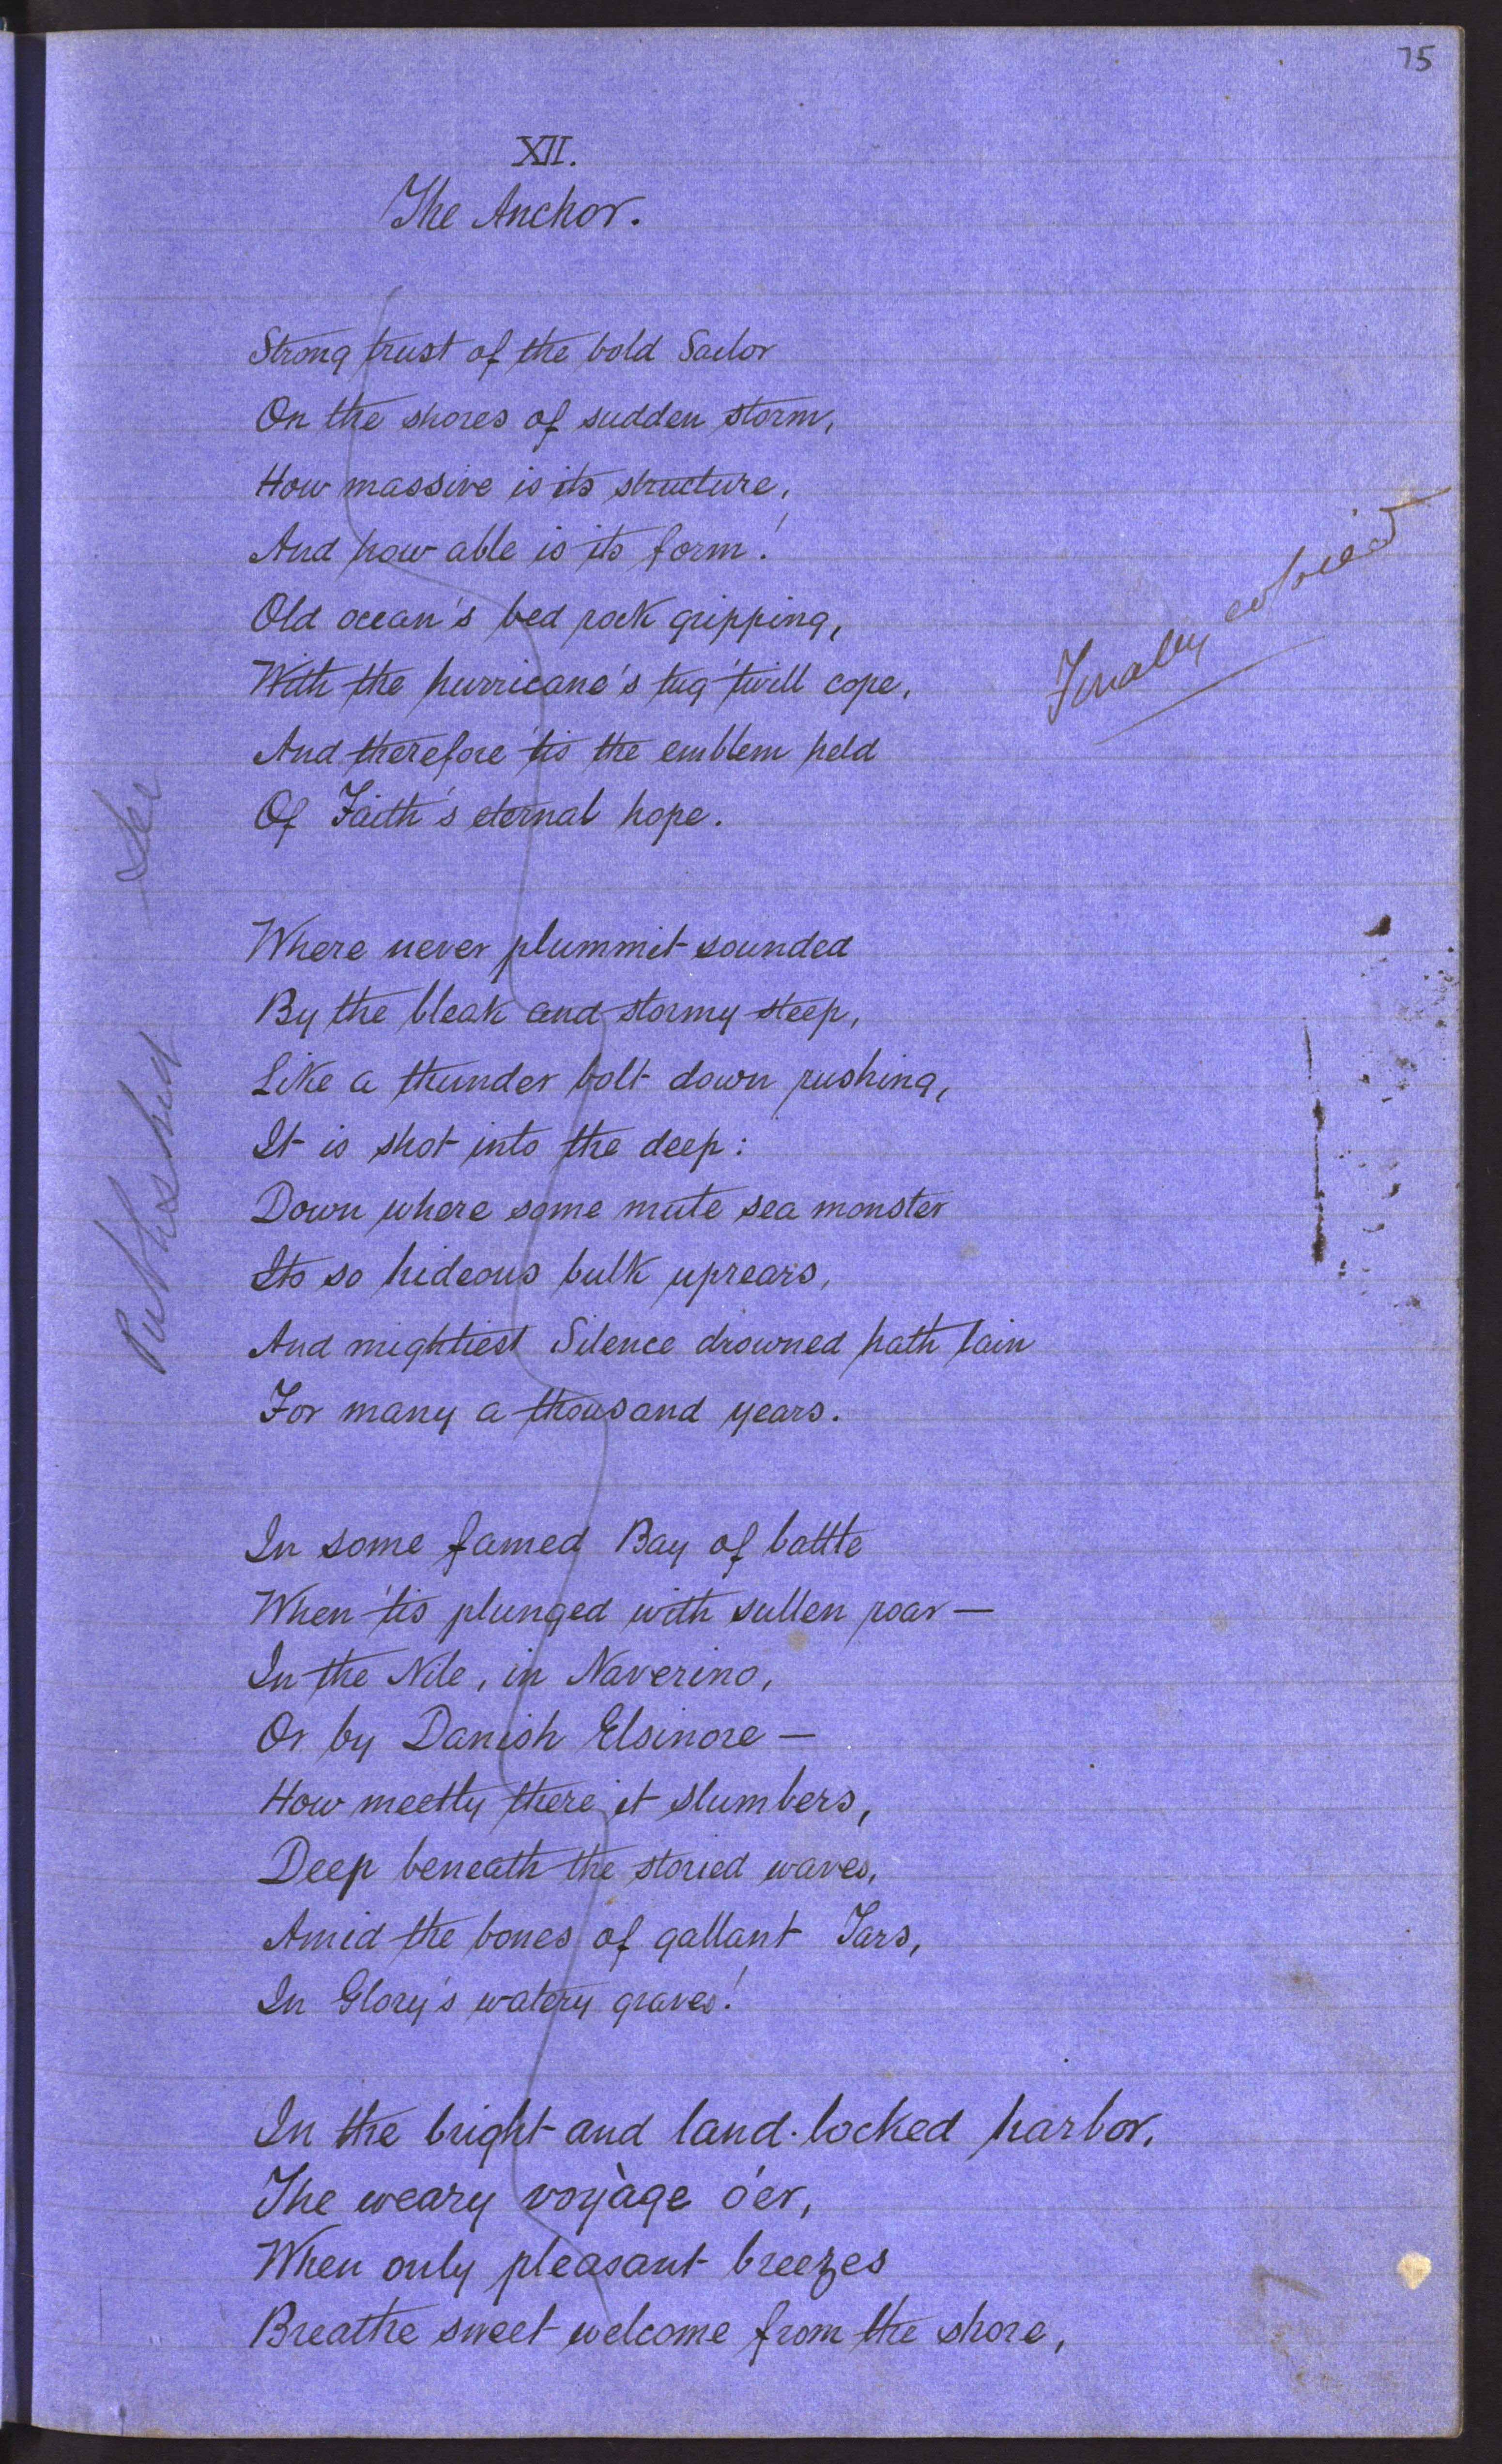 75
XII.
The Anchor.
Strong trust of the bold Sailor
On the shores of sudden storm,
How massive is its structure,
And how able is its form!
Old ocean's bed rock gripping,
With the hurricane's tug 'twill cope,
And therefore 'tis the emblem held
Of Faith's eternal hope.
Finally copied
Where never plummit sounded
By the bleak and stormy steep,
Like a thunder bolt down rushing,
It is shot into the deep:
Down where some mute sea monster
Its so hideous bulk uprears,
And mightiest Silence drowned hath lain
For many a thousand years.
Published
In some famed Bay of battle
When 'tis plunged with sullen roar —
In the Nile, in Naverino,
Or by Danish Elsinore —
How meetly there it slumbers,
Deep beneath the storied waves,
Amid the bones of gallant Tars,
In Glory's watery graves!
In the bright and land-locked harbor,
The weary voyàge o'er,
When only pleasant breezes
Breathe sweet welcome from the shore,